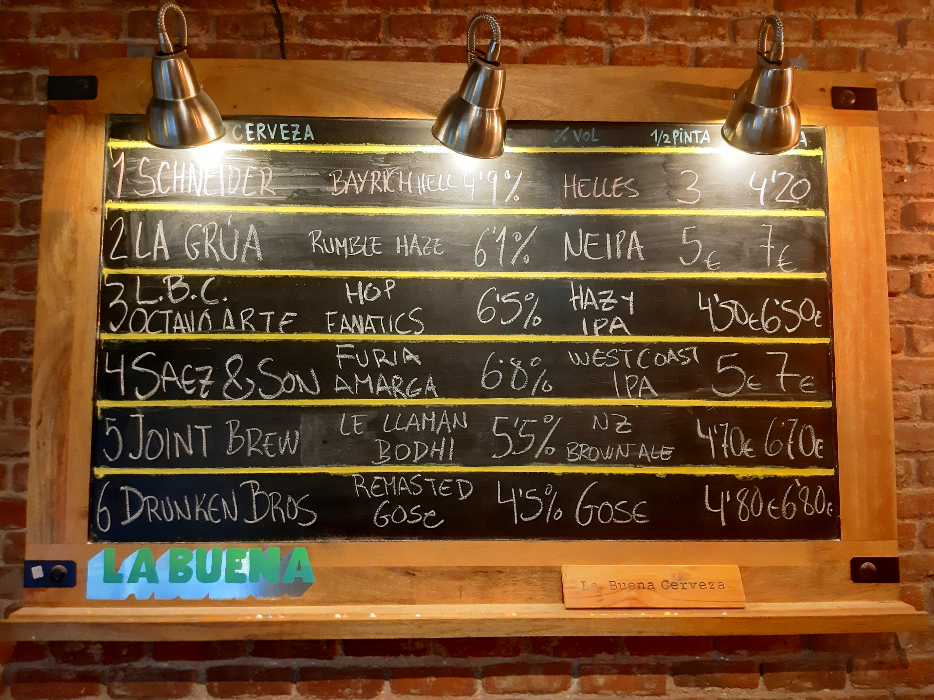 CERVEZA % VOL 1/2 PINTA
1 SCHNEIDER BAYRICH HELL 4'9% HELLES 3 4'20
2 LA GRÚA RUMBLE HAZE 6'1% NEIPA 5€ 7€
3 L.B.C. OCTAVO ARTE HOP FANATICS 6'5% HAZY IPA 4'50€ 6'50€
4 SAEZ & SON FURIA AMARGA 6'8% WEST COAST IPA 5€ 7€
5 JOINT BREW LE LLAMAN BODHI 5'5% NZ BROWN ALE 4'70€ 6'70€
6 DRUNKEN BROS REMASTED GOSE 4'5% GOSE 4'80€ 6'80€
LA BUENA
La Buena Cerveza